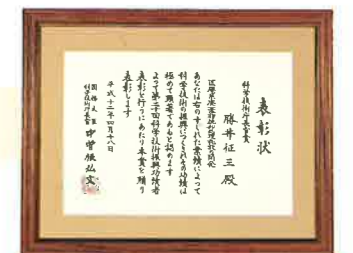 表彰状
科学技術庁長官賞
勝井征三 殿
あなたは右のすぐれた業績によって
科学技術の振興につくされその功績は
極めて顕著であると認めます
よって第二十回科学技術振興功績者
表彰を行うにあたり本賞を贈り
表彰します
平成十二年四月十八日
国務大臣
科学技術庁長官 中曽根弘文